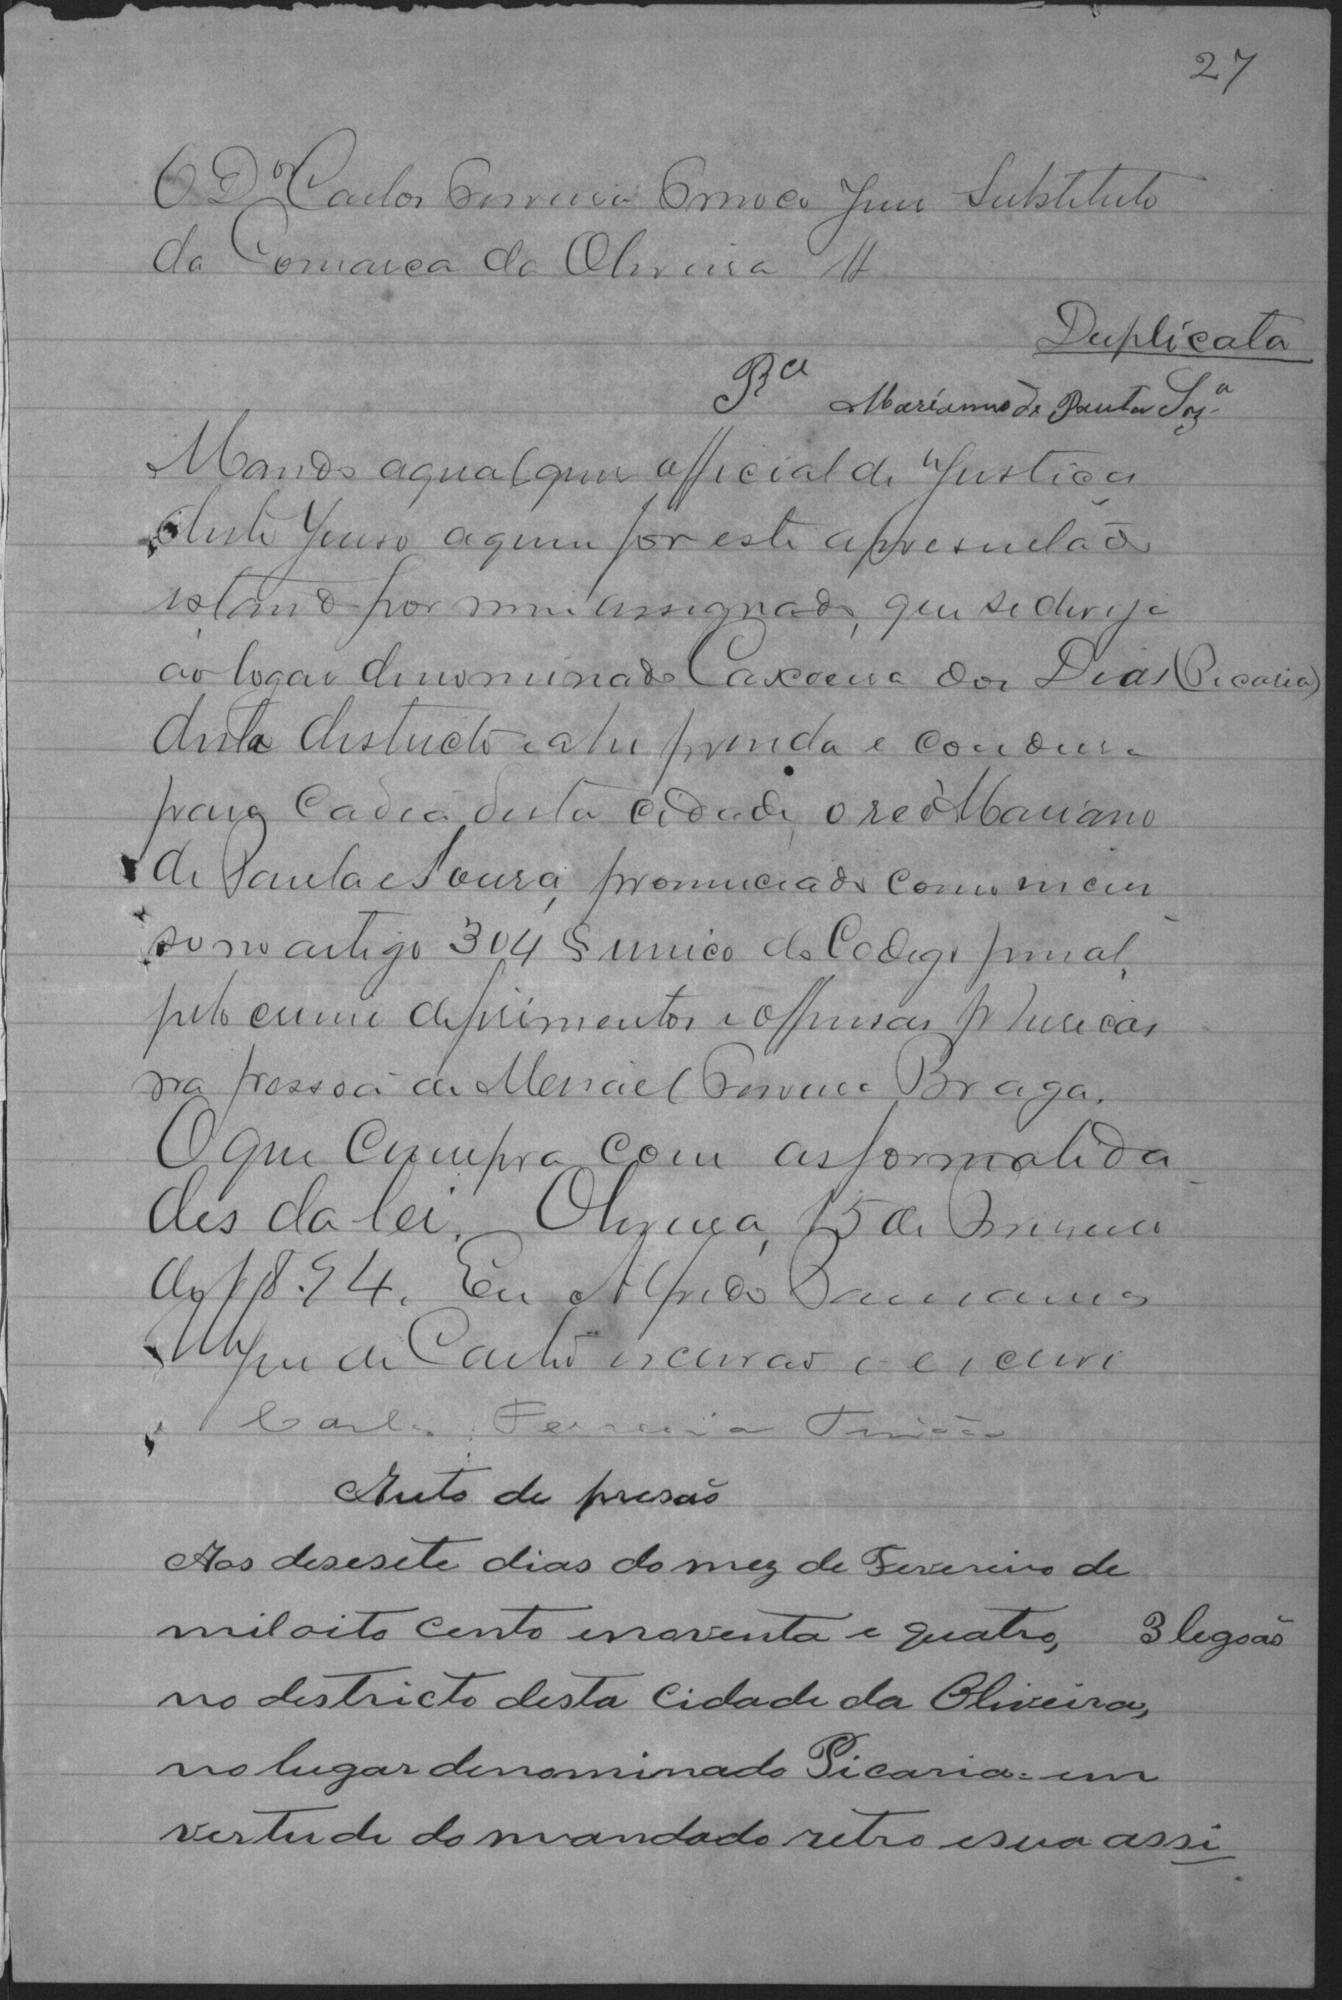 27
O Dor Carlos Ferreira Juiz Substituto
da Comarca da Oliveira //
Duplicata
Marianno de Paula Sza
Mando a qualquer official de Justiça
deste Juiso a quem for este apresentado
estando por mim assignado, que se dirija
ao logar denominado Caxoeira dos Dias (Picaria)
deste districto e ahi prenda e condusa
para Cadea desta cidade, o reo Mariano
de Paula e Sousa, pronunciado como incur
so no artigo 304 § unico do Codigo penal,
pelo crime de ferimentos e offensas phisicas
na pessoa de Manoel Ferreira Braga.
O que cumpra com as formalida
des da lei. Oliveira, 15 de Fevereiro
de 1894. Eu Alfredo
de Castro escrivão o escrevi
Carlos Ferreira
Auto de presão
Aos desesete dias do mez de Fevereiro de
mil oito cento enoventa e quatro, 3 legoas
no destricto desta Cidade da Oliveira,
no lugar denominado Picaria: em
vertude do mandado retro esua assi